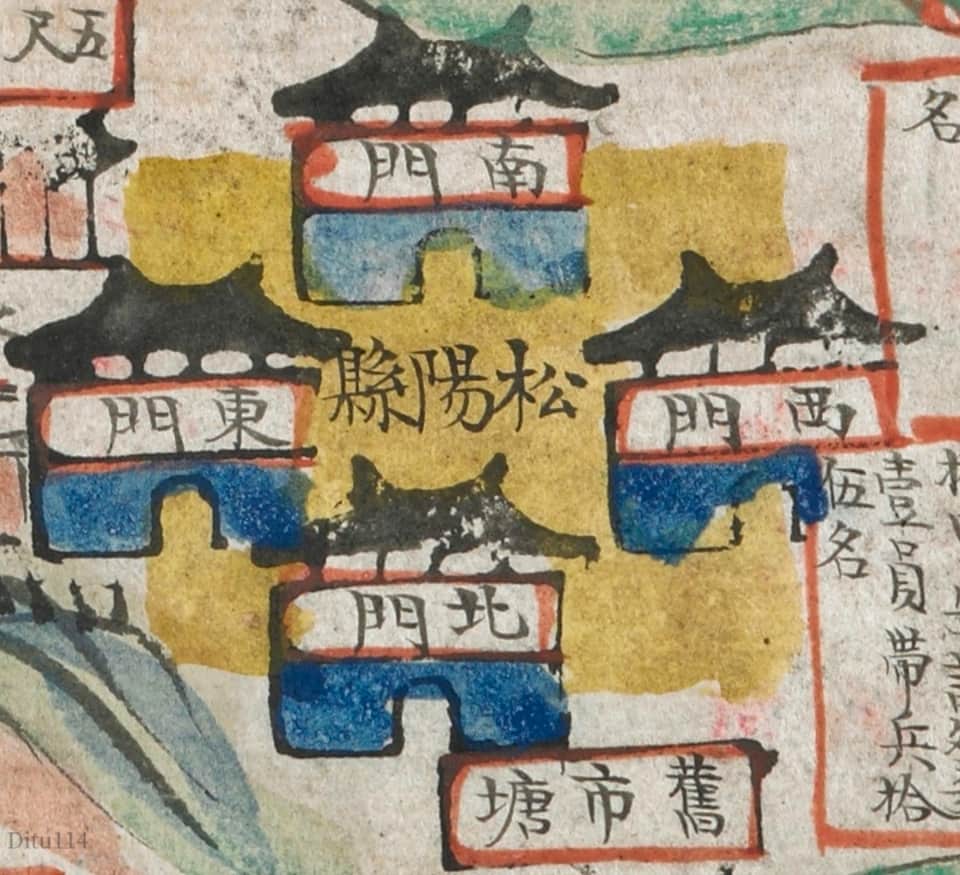 五尺
名
南門
松陽縣
東門
西門
北門
壹員帶兵拾
伍名
舊市塘
Ditu114